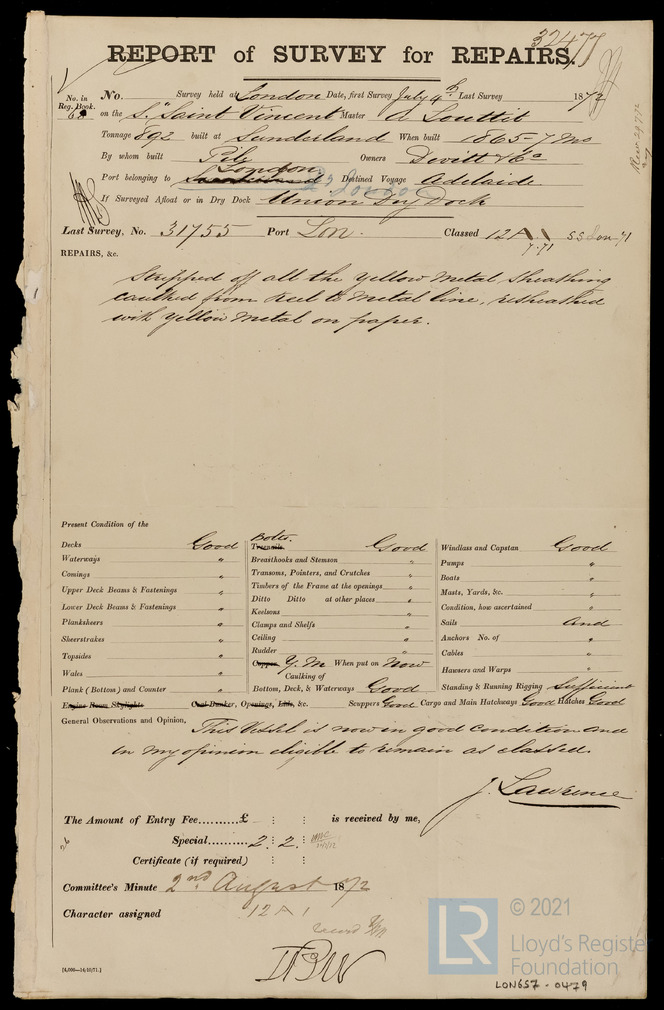 32477
REPORT of SURVEY for REPAIRS.
No. in Reg. Book. No. Survey held at London Date, first Survey July 4th Last Survey 1872
on the S. "Saint Vincent Master A Louttit
Tonnage 892 built at Sunderland When built 1865-7 Mo
By whom built Pile Owners Devitt & Co
London
Port belonging to Destined Voyage Adelaide
If Surveyed Afloat or in Dry Dock Union Dry Dock
Last Survey, No. 31755 Port Lon. Classed 12 A 1 S.S Lon 71
7.71
REPAIRS, &c.
Stripped off all the yellow metal sheathing
caulked from keel to metal line, resheathed
with yellow metal on paper.
Present Condition of the
Decks Good
Waterways "
Comings "
Upper Deck Beams & Fastenings "
Lower Deck Beams & Fastenings "
Planksheers "
Sheerstrakes "
Topsides "
Wales "
Plank (Bottom) and Counter "
Engine Room Skylights
Bolts.
Treenails Good
Breasthooks and Stemson "
Transoms, Pointers, and Crutches "
Timbers of the Frame at the openings "
Ditto Ditto at other places "
Keelsons "
Clamps and Shelfs "
Ceiling "
Rudder "
Copper Y. M When put on Now
Caulking of
Bottom, Deck, & Waterways Good
Coal Bunker, Openings, Lids, &c.
Windlass and Capstan Good
Pumps "
Boats "
Masts, Yards, &c. "
Condition, how ascertained "
Sails and
Anchors No. of "
Cables "
Hawsers and Warps "
Standing & Running Rigging Sufficient
Scuppers Good Cargo and Main Hatchways Good Hatches Good
General Observations and Opinion, This Vessel is now in good condition and
in my opinion eligible to remain as classed.
J. Lawrence
The Amount of Entry Fee.........£ : : is received by me,
Special..........2 : 2 :
Certificate (if required) : :
Committee's Minute 2nd August 1872
Character assigned 12 A 1
record
[4,000—14/10/71.]
LR
© 2021
Lloyd's Register
Foundation
LON657-0479